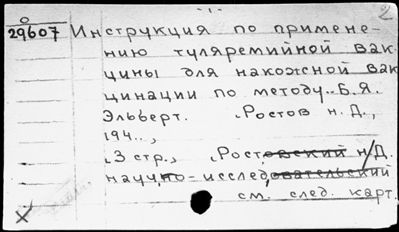 -1-
2
0
29607 Инструкция по примене-
нию туляремийной вак-
цины для накожной вак
цинации по методу..Б.Я.
Эльберт. Ростов н.Д.,
194..,
3 стр., Ростовский н/Д.
научно-исследовательский
см. след. карт.